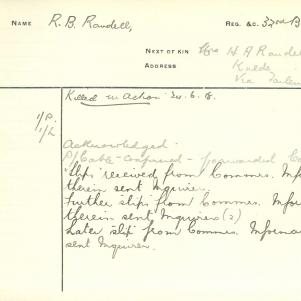 NAME R. B. Randell, REG. &C. 32nd B
NEXT OF KIN Mrs H A Randel
ADDRESS Kulde
Via Tailem
Killed in Action 24.6.18.
1/P.
1/L
Acknowledged
P/Cable Confirmed - forwarded Co
'slip' received from Commrs. Info
therein sent Inquirer.
Further slips from Commrs. Inform
therein sent Inquirers (2)
Later slip from Commrs. Informa
sent Inquirer.